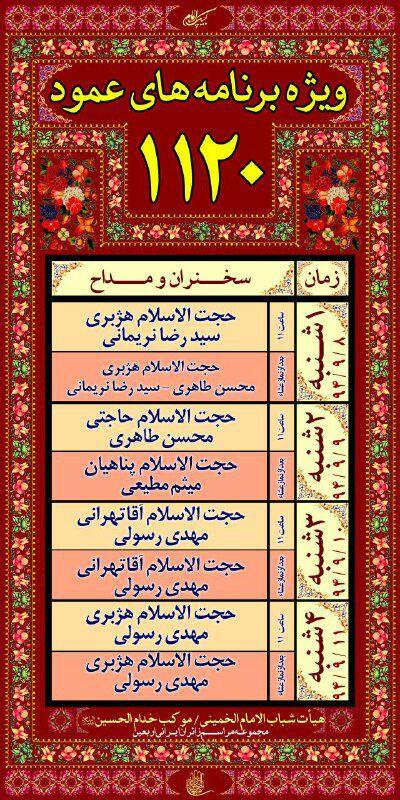 ویژه برنامه های عمود
۱۱۲۰
زمان
سخنران و مداح
۱شنبه
۹۴/۹/۸
ساعت ۱۱
حجت الاسلام هژبری
سید رضا نریمانی
بعد از نماز عشاء
حجت الاسلام هژبری
محسن طاهری - سید رضا نریمانی
۲شنبه
۹۴/۹/۹
ساعت ۱۱
حجت الاسلام حاجتی
محسن طاهری
بعد از نماز عشاء
حجت الاسلام پناهیان
میثم مطیعی
۳شنبه
۹۴/۹/۱۰
ساعت ۱۱
حجت الاسلام آقاتهرانی
مهدی رسولی
بعد از نماز عشاء
حجت الاسلام آقاتهرانی
مهدی رسولی
۴شنبه
۹۴/۹/۱۱
ساعت ۱۱
حجت الاسلام هژبری
مهدی رسولی
بعد از نماز عشاء
حجت الاسلام هژبری
مهدی رسولی
هیأت شباب الامام الخمینی / موکب خدام الحسین
مجموعه مراسم زائران ایرانی اربعین